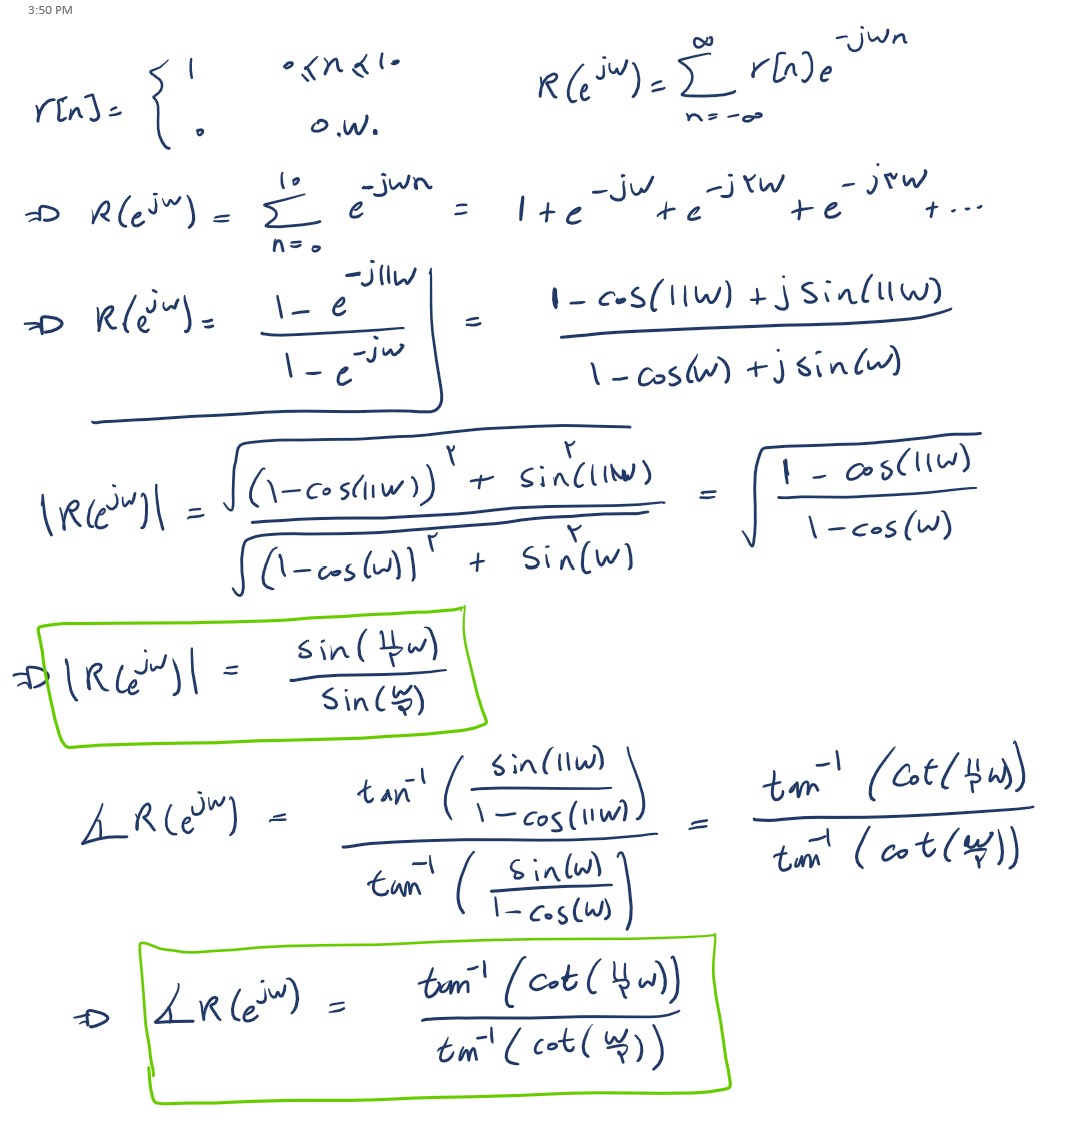 3:50 PM
r[n] = { 1 ۰ ≤ n ≤ ۱۰ R(e^{jw}) = ∑_{n=-∞}^{∞} r[n] e^{-jwn}
۰ o.w.
⇒ R(e^{jw}) = ∑_{n=۰}^{۱۰} e^{-jwn} = 1 + e^{-jw} + e^{-j۲w} + e^{-j۳w} + ...
⇒ R(e^{jw}) = (1 - e^{-j11w}) / (1 - e^{-jw}) = (1 - cos(11w) + j sin(11w)) / (1 - cos(w) + j sin(w))
|R(e^{jw})| = √((1-cos(11w))^۲ + sin^۲(11w)) / √((1-cos(w))^۲ + sin^۲(w)) = √((1 - cos(11w)) / (1 - cos(w)))
⇒ |R(e^{jw})| = sin(۱۱/۲ w) / sin(w/۲)
∡R(e^{jw}) = tan^{-1}(sin(11w) / (1 - cos(11w))) / tan^{-1}(sin(w) / (1 - cos(w))) = tan^{-1}(cot(۱۱/۲ w)) / tan^{-1}(cot(w/۲))
⇒ ∡R(e^{jw}) = tan^{-1}(cot(۱۱/۲ w)) / tan^{-1}(cot(w/۲))